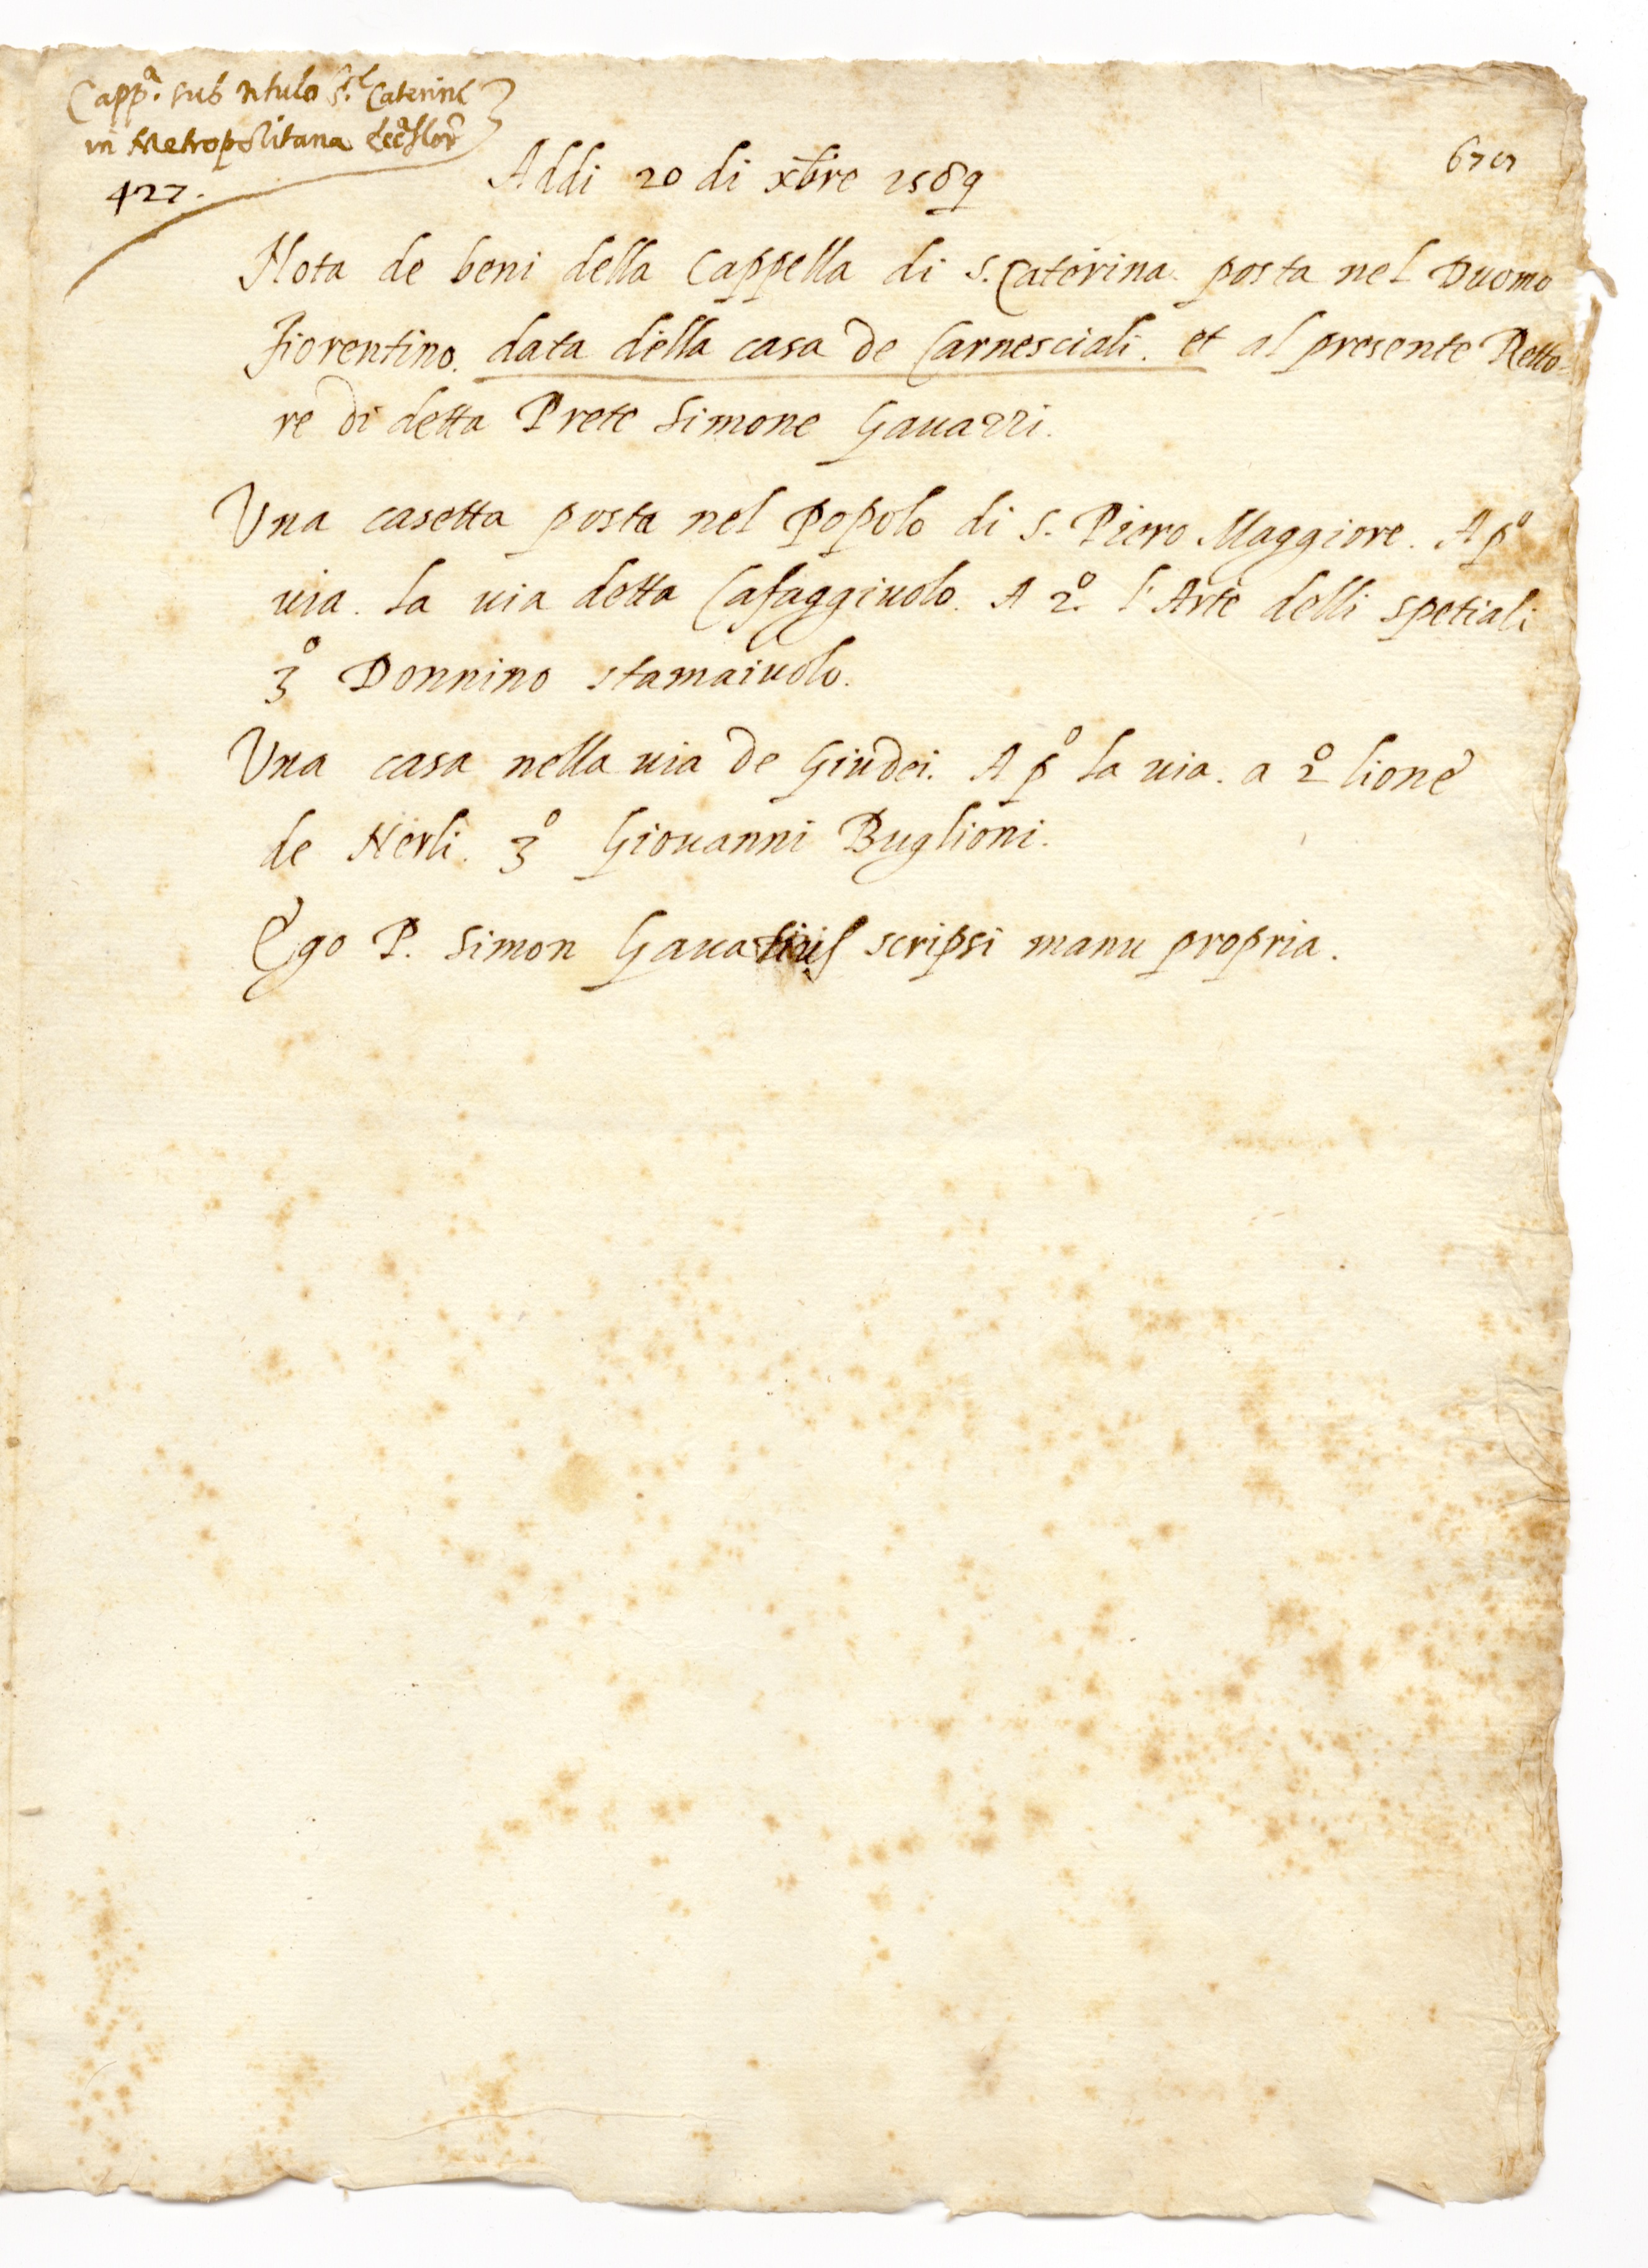 Capp.ª sub titulo S.te Caterine
in Metropolitana Ecc.ª flor.
427.
Addi 20 di xbre 1589
Nota de beni della Cappella di S. Caterina posta nel Duomo
fiorentino. data della casa de Carnesciali. et al presente Retto=
re di detta Prete Simone Gauazzi.
Una casetta posta nel Popolo di S. Piero Maggiore. A pº
uia. la uia detta Cafaggiuolo. A 2º. l'Arte delli spetiali
3º Donnino stamaiuolo.
Una casa nella uia de Giudei. A pº la uia. a 2º lione
de Nerli. 3º Giouanni Buglioni.
Ego P. Simon scripsi manu propria.